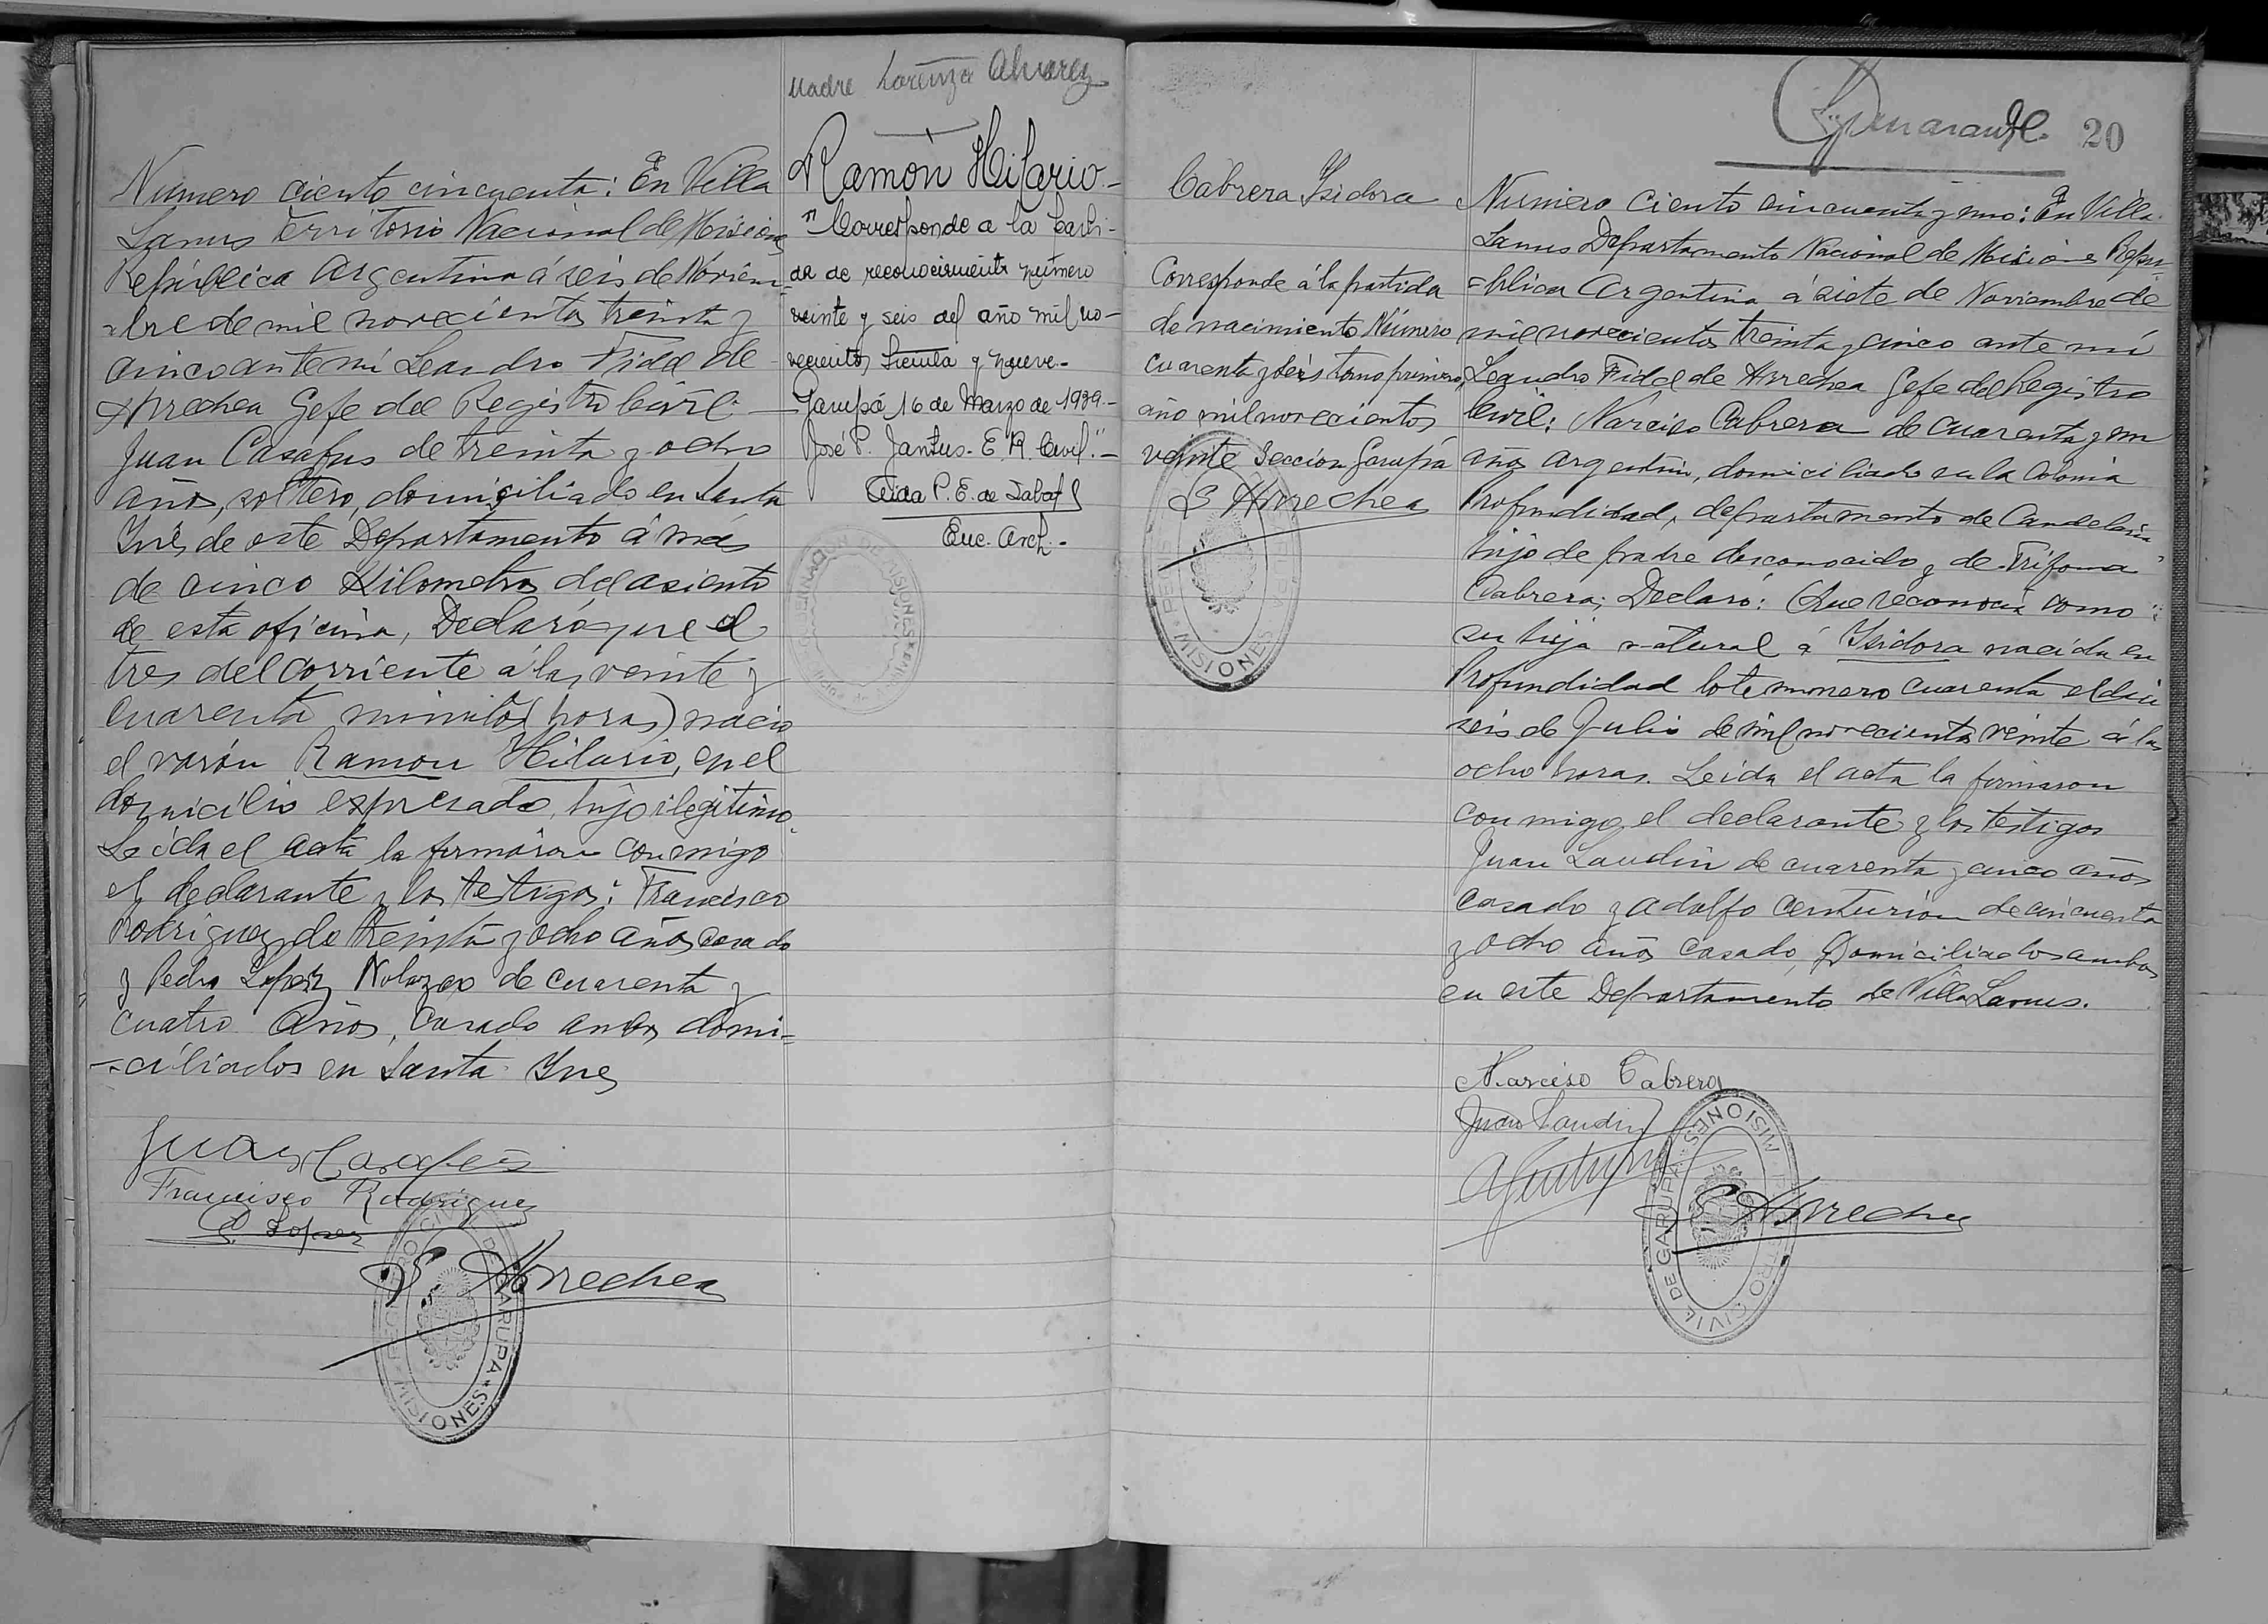 Numero ciento cincuenta: En Villa
Lanus Territorio Nacional de Misiones
República Argentina á seis de Noviem-
-bre de mil novecientos treinta y
cinco ante mi Leandro Fidel de
Arrechea Gefe del Registro Civil
Juan Casafus de treinta y ocho
años, soltero, domiciliado en Santa
Inés de este Departamento á más
de cinco Kilometros del asiento
de esta oficina, Declaró que el
tres del corriente á las veinte y
cuarenta minutos (horas) nació
el varón Ramon Hilario, en el
domicilio expresado, hijo ilegitimo.
Leida el acta la firmaron conmigo
el declarante y los testigos: Francisco
Rodriguez de treinta y ocho años casado
y Pedro Lopez Nolazco de cuarenta y
cuatro años, casado ambos domi=
-ciliados en Santa Ines
Juan Casafus
Francisco Rodriguez
P. Lopez
L. Arrechea
REGISTRO CIVIL DE GARUPA
MISIONES
Madre Lorenza Alvarez
Ramón Hilario.-
"Corresponde a la parti-
da de reconocimiento número
veinte y seis del año mil no-
vecientos treinta y nueve.-
Garupá 16 de Marzo de 1939.-
José P. Jantus- E. R. Civil."-
P. E. de
Enc. Arch.-
MISIONES
20
Cabrera Isidora
Corresponde á la partida
de nacimiento Número
cuarenta y seis tomo primero,
año mil novecientos
veinte Seccion Garupá
L Arrechea
MISIONES
Numero ciento cincuenta y uno: En Villa
Lanus Departamento Nacional de Misiones Repu-
-blica Argentina á siete de Noviembre de
mil novecientos treinta y cinco ante mí
Leandro Fidel de Arrechea Gefe del Registro
Civil: Narciso Cabrera de cuarenta y un
años argentino, domiciliado en la Colonia
Profundidad, departamento de Candelaria
hijo de padre desconocido y de Trifona
Cabrera; Declaró: Que reconocia como
su hija natural á Isidora nacida en
Profundidad lote numero cuarenta el dieci
seis de Julio de mil novecientos veinte á las
ocho horas. Leida el acta la firmaron
conmigo el declarante y los testigos
Juan Landin de cuarenta y cinco años
casado y Adolfo Centurion de cincuenta
y ocho años casado, Domiciliados ambos
en este Departamento de Villa Lanus.
Narciso Cabrera
Juan Landin
L Arrechea
REGISTRO CIVIL DE GARUPA
MISIONES